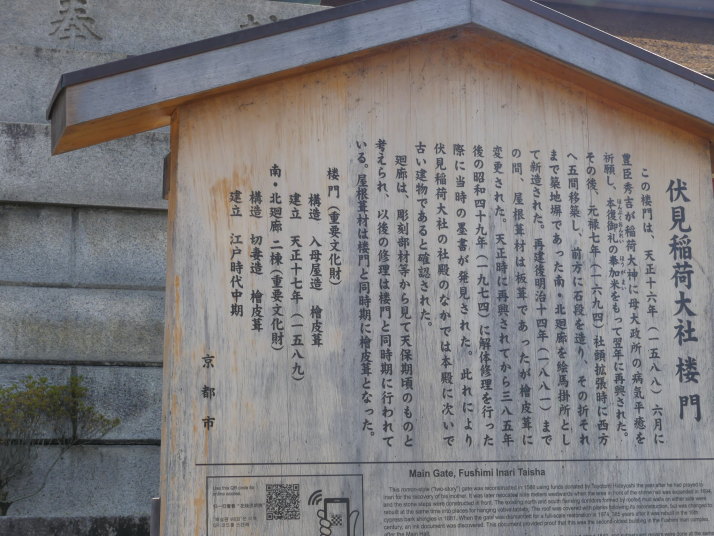 奉
伏見稲荷大社 楼門
この楼門は、天正十六年（一五八八）六月に
豊臣秀吉が稲荷大神に母大政所の病気平癒を
祈願し、本復御礼の奉加米をもって翌年に再興された。
その後、元禄七年（一六九四）社頭拡張時に西方
へ五間移築し、前方に石段を造り、その折それ
まで築地塀であった南・北廻廊を絵馬掛所とし
て新造された。再建後明治十四年（一八八一）まで
の間、屋根葺材は板葺であったが檜皮葺に
変更された。天正時に再興されてから三八五年
後の昭和四十九年（一九七四）に解体修理を行った
際に当時の墨書が発見された。此れにより
伏見稲荷大社の社殿のなかでは本殿に次いで
古い建物であると確認された。
廻廊は、彫刻部材等から見て天保期頃のものと
考えられ、以後の修理は楼門と同時期に行われて
いる。屋根葺材は楼門と同時期に檜皮葺となった。
楼門（重要文化財）
構造 入母屋造 檜皮葺
建立 天正十七年（一五八九）
南・北廻廊 二棟（重要文化財）
構造 切妻造 檜皮葺
建立 江戸時代中期
京都市
Main Gate, Fushimi Inari Taisha
This romon-style ("two-story") gate was reconstructed in 1589 using funds donated by Toyotomi Hideyoshi the year after he had prayed to
Inari for the recovery of his mother. It was later relocated nine meters westwards when the area in front of the shrine hall was expanded in 1694,
and the stone steps were constructed in front. The existing earth and
rebuilt at the same time into places for hanging votive tablets. The roof was covered with planks following its reconstruction, but was changed to
cypress bark shingles in 1881. When the gate was dismantled for a full-scale restoration in 1974, 385 years after it was rebuilt in the 16th
century, an ink document was discovered. This document provided proof that this was the second-oldest building in the Fushimi Inari complex,
after the Main Hall.
Use this QR code for